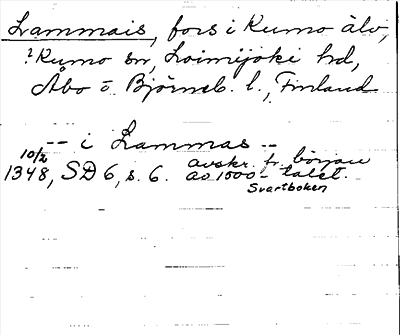 Lammais, fors i Kumo älv,
? Kumo sn, Loimijoki hd,
Åbo o. Björneb. l., Finland
-- i Lammas --
10/2 1348, SD 6, s. 6. avskr. fr. början
av 1500-talet.
Svartboken